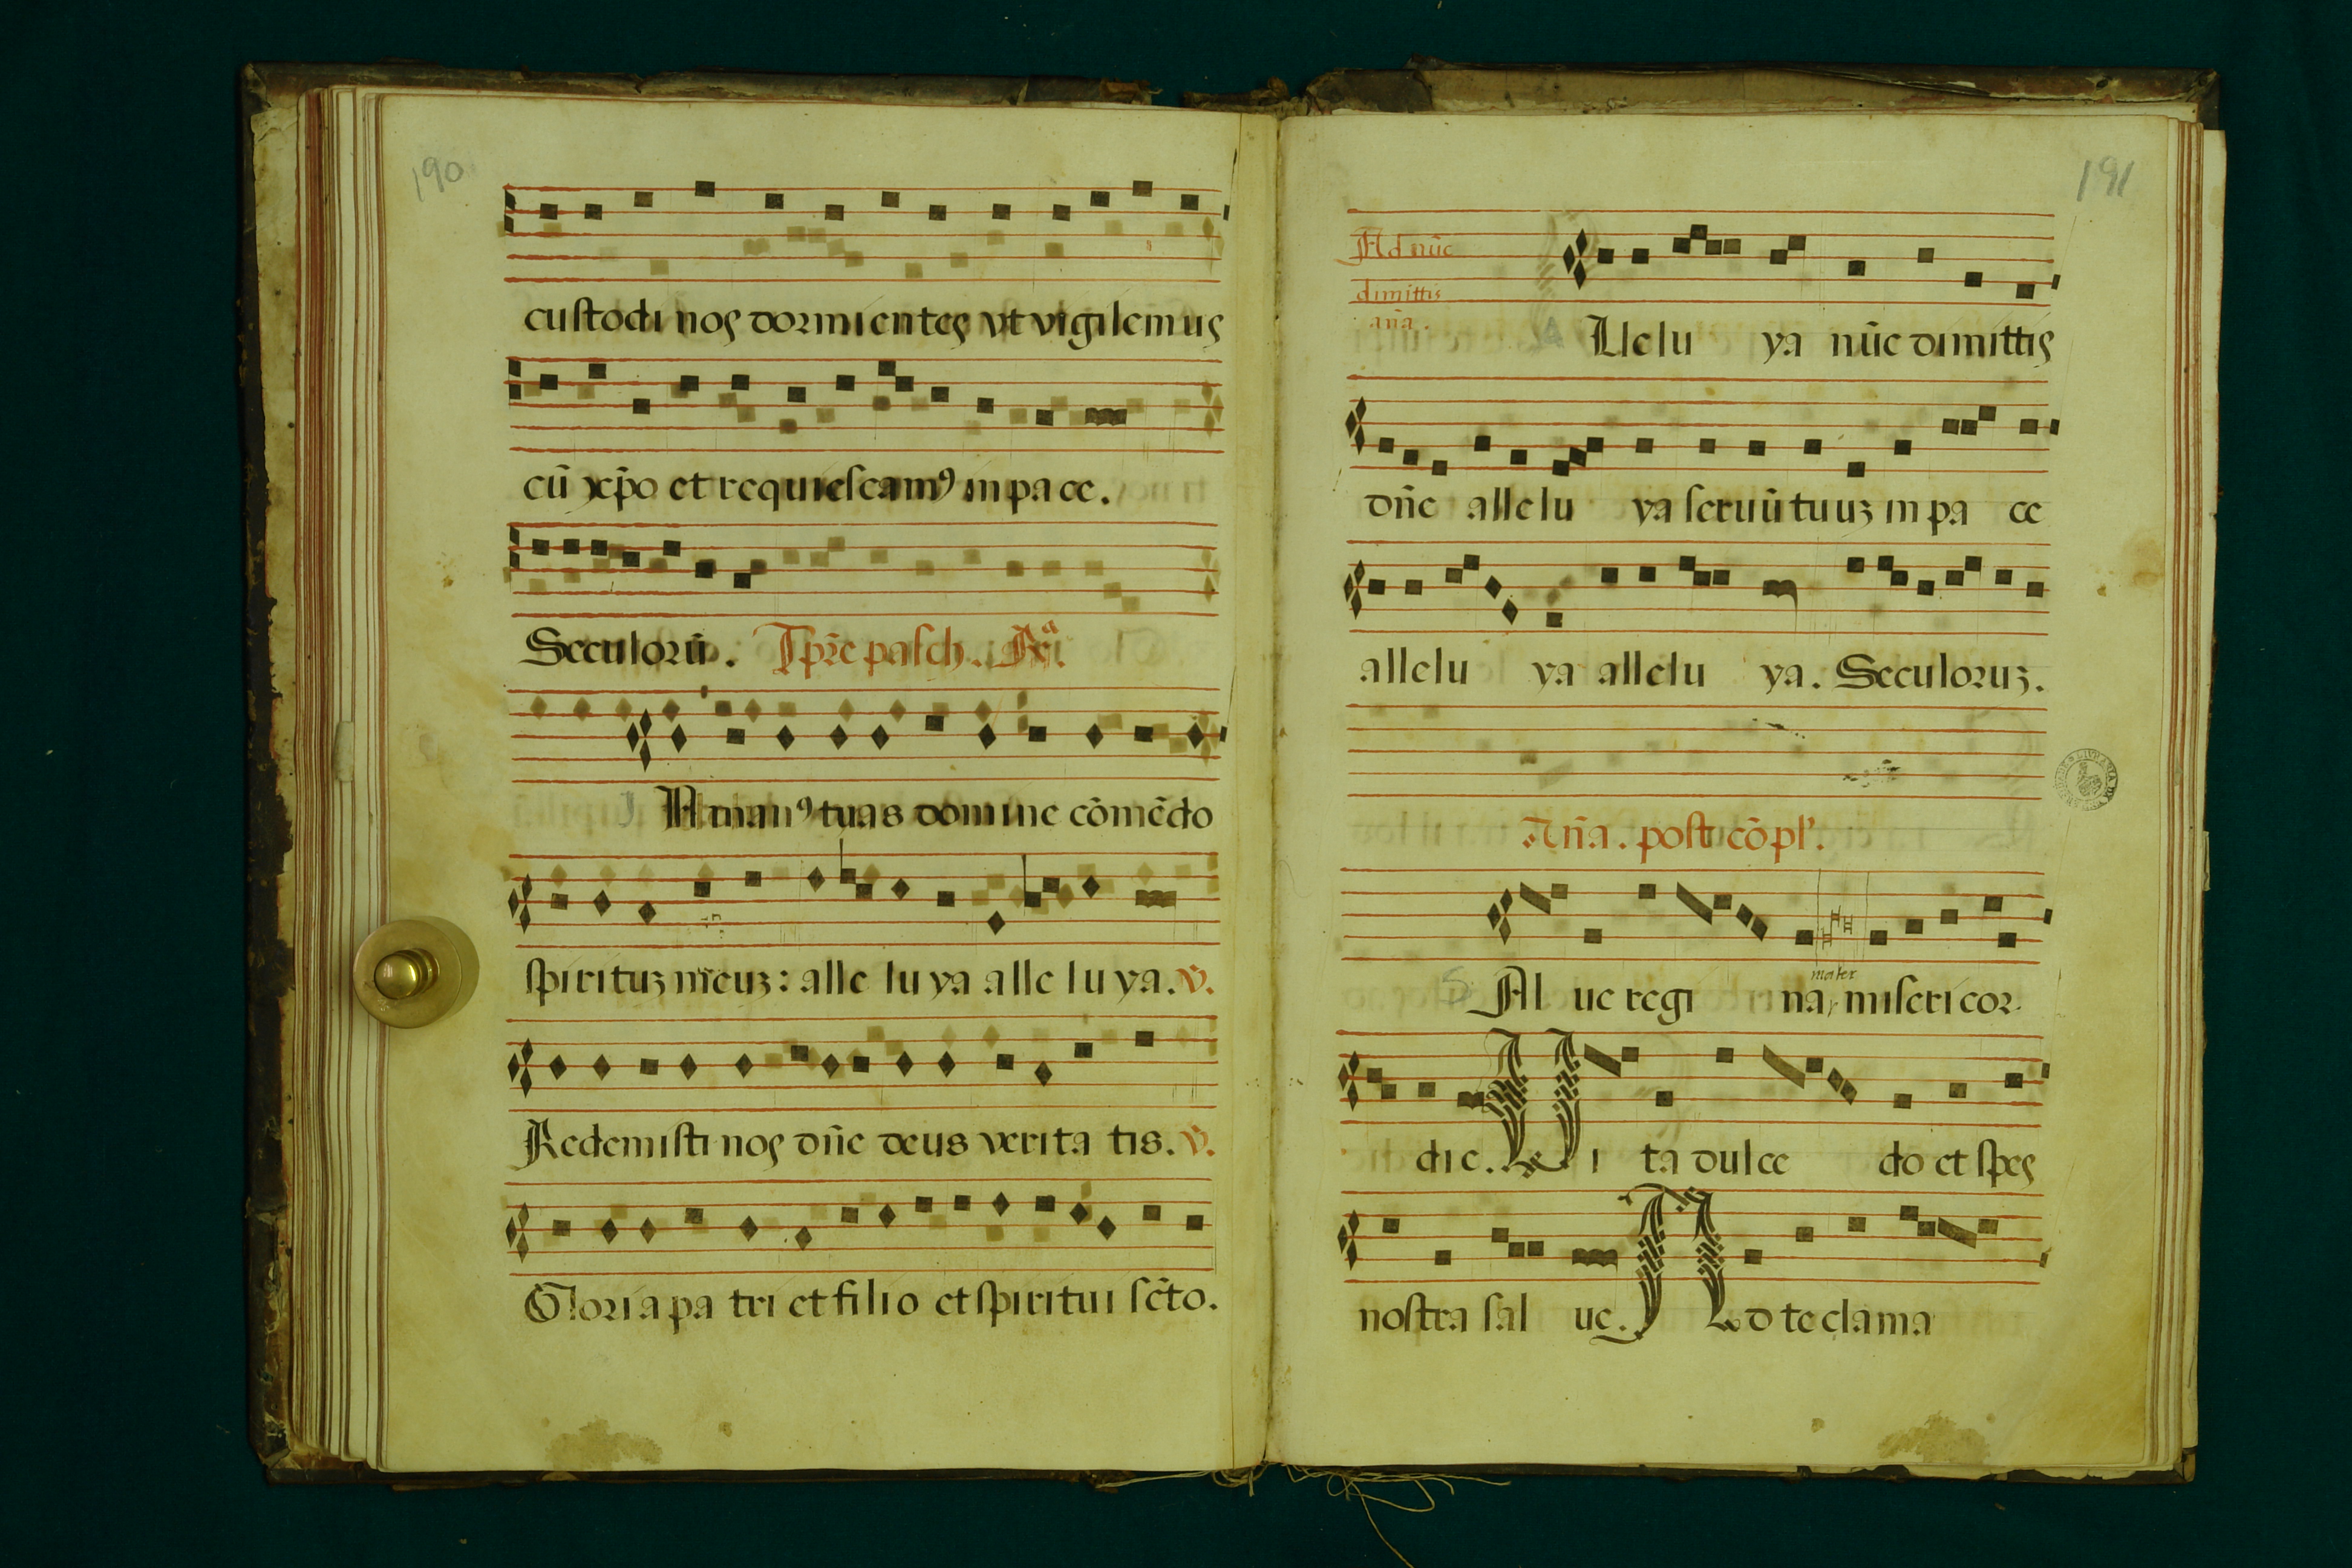 190
custodi nos dormientes vt vigilemus
cū xp̄o et requiescamꝰ in pace.
Seculorū. Tp̄re pasch. R̄ᵃ.
I N manꝰ tuas domine cōmēdo
spirituꝫ meuꝫ: alle lu ya alle lu ya. v̄.
Redemisti nos dn̄e deus verita tis. v̄.
Gloria pa tri et filio et spiritui scto.
191
Ad nūc
dimittis
an̄a.
A Llelu ya nūc dimittis
dn̄e allelu ya seruū tuuꝫ in pa ce
allelu ya allelu ya. Seculoruꝫ.
An̄a. post cōpl'.
mater
S Al ue regi na, misericor
die. Vi ta dulce do et spes
nostra sal ue. Ad te clama